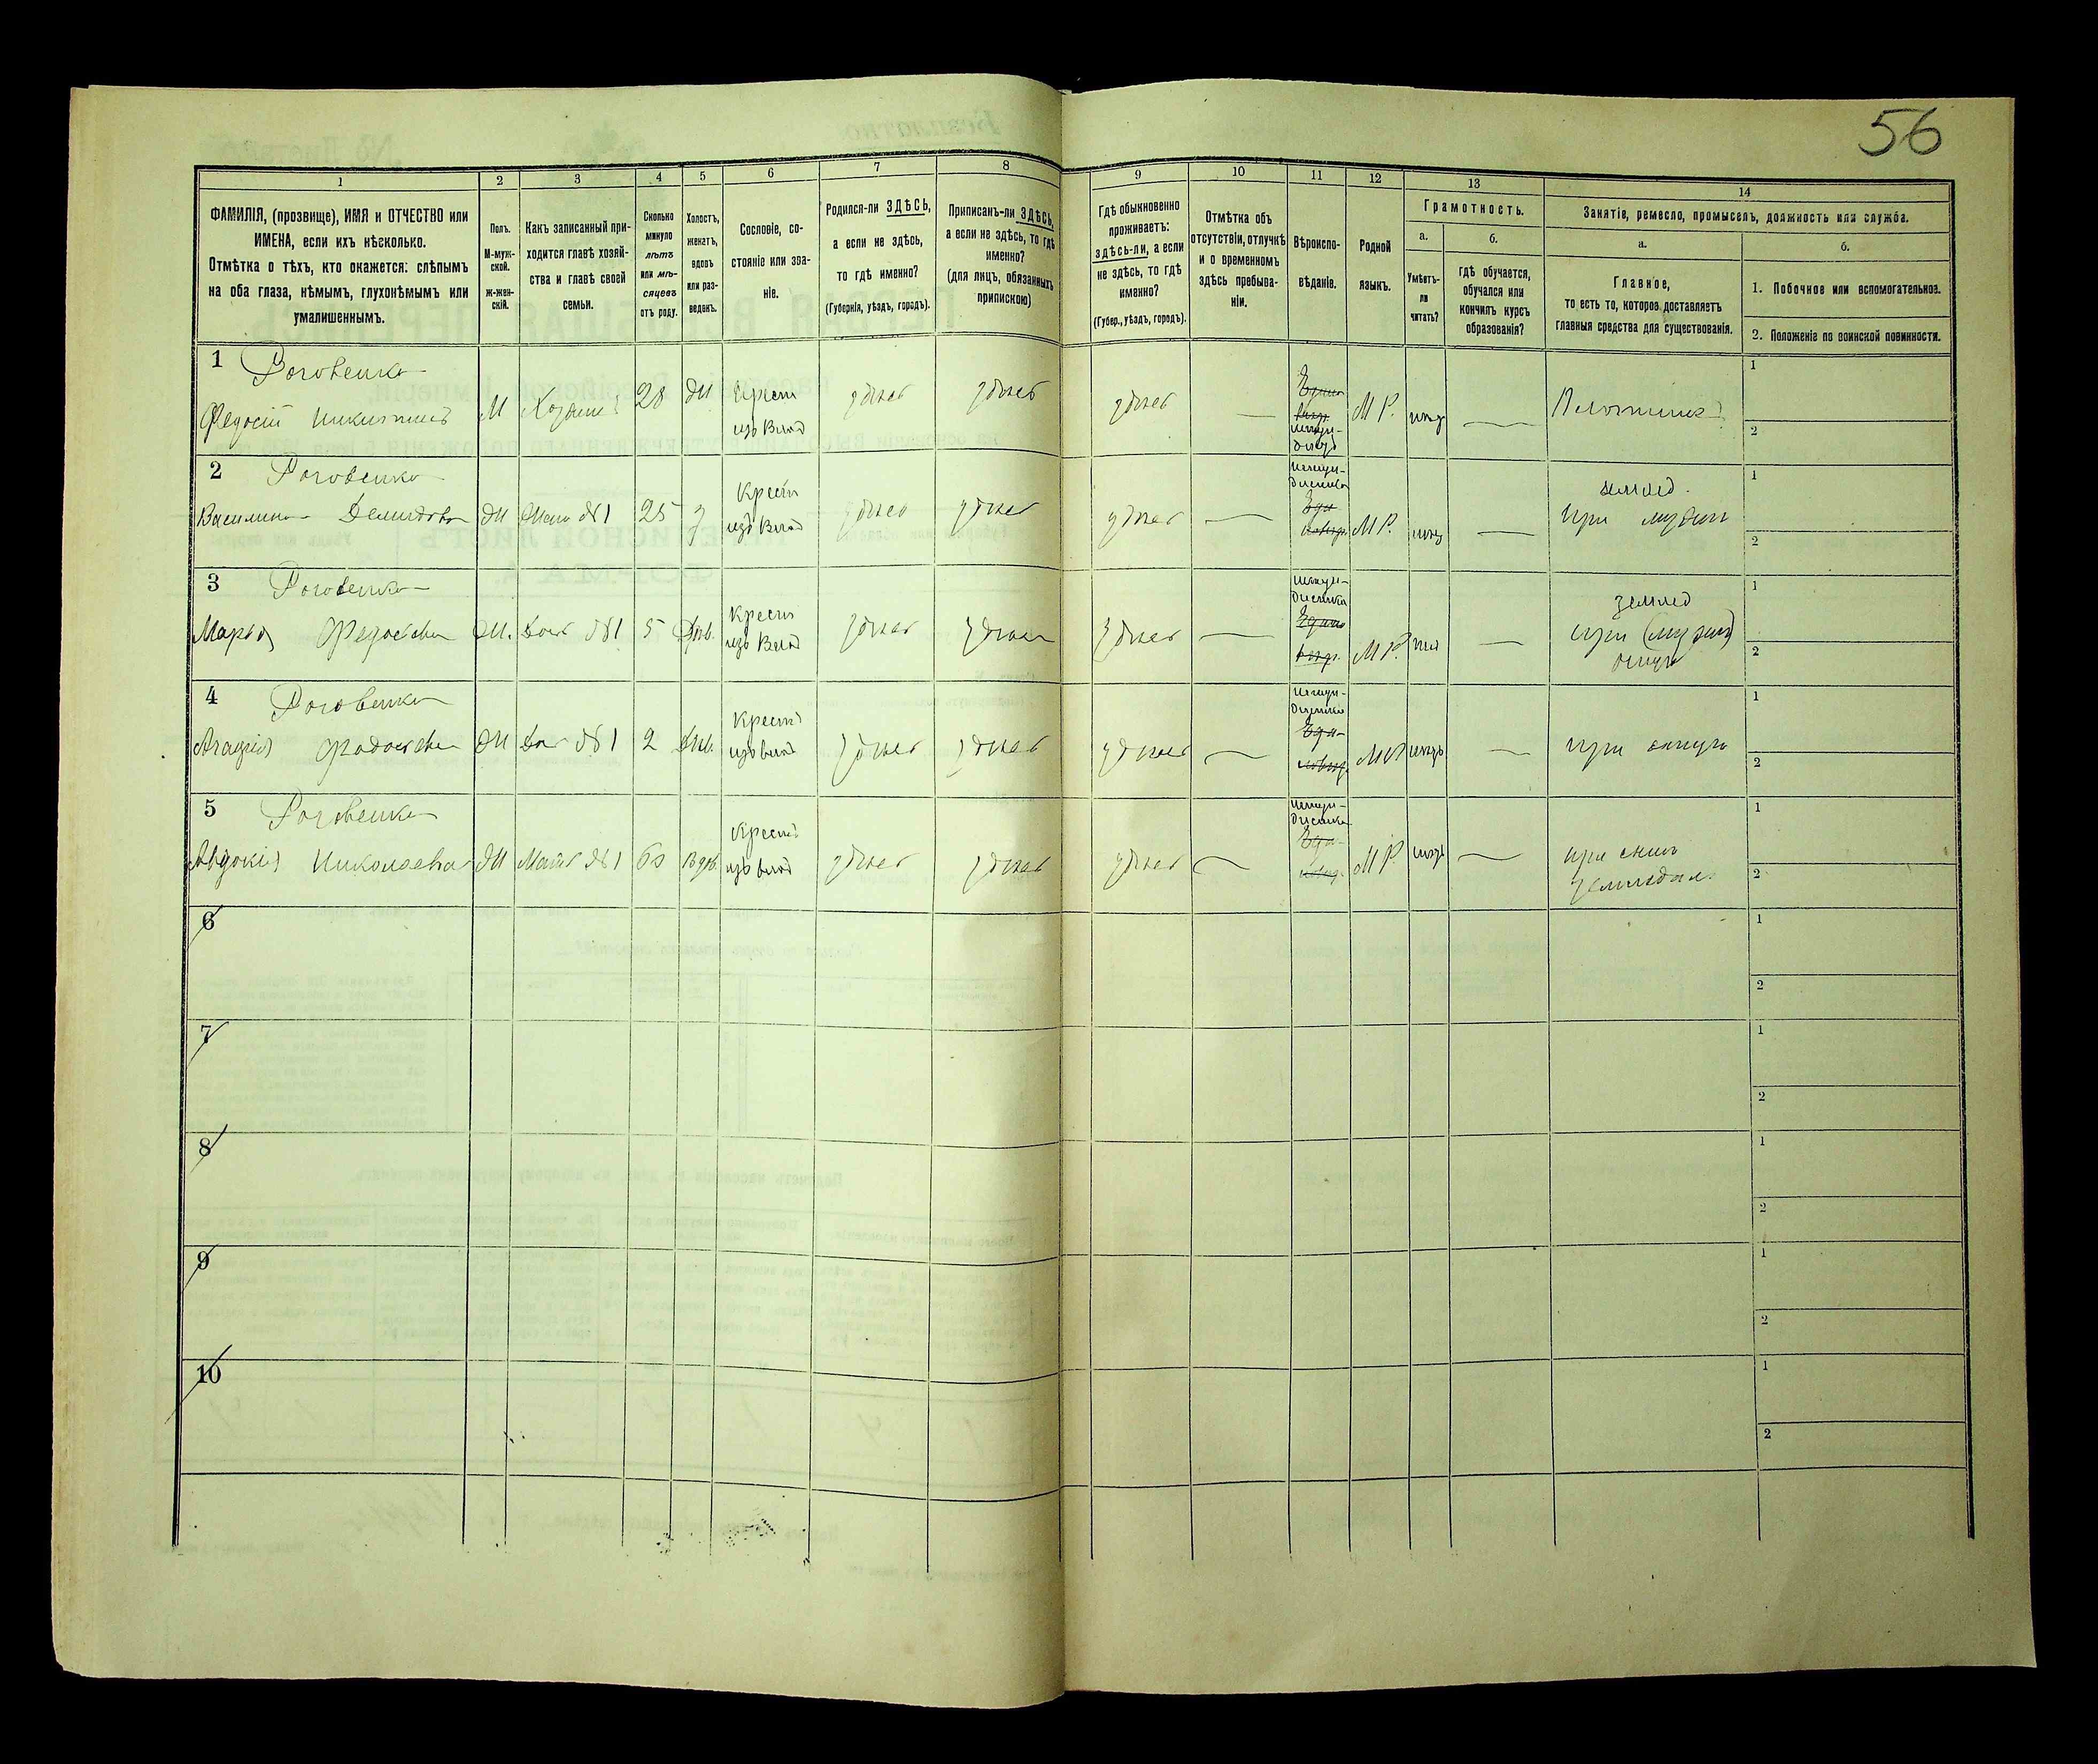 56
1 2 3 4 5 6 7 8 9 10 11 12 13 14
ФАМИЛІЯ, (прозвище), ИМЯ и ОТЧЕСТВО или
ИМЕНА, если ихъ нѣсколько.
Отмѣтка о тѣхъ, кто окажется: слѣпымъ
на оба глаза, нѣмымъ, глухонѣмымъ или
умалишеннымъ.
Полъ.
М-муж-
ской.
ж-жен-
скій.
Какъ записанный при-
ходится главѣ хозяй-
ства и главѣ своей
семьи.
Сколько
минуло
лѣтъ
или мѣ-
сяцевъ
отъ роду.
Холостъ,
женатъ,
вдовъ
или раз-
веденъ.
Сословіе, со-
стояніе или зва-
ніе.
Родился-ли ЗДѢСЬ,
а если не здѣсь,
то гдѣ именно?
(Губернія, уѣздъ, городъ).
Приписанъ-ли ЗДѢСЬ,
а если не здѣсь, то гдѣ
именно?
(для лицъ, обязанныхъ
припиского)
Гдѣ обыкновенно
проживаетъ:
здѣсь-ли, а если
не здѣсь, то гдѣ
именно?
(Губер., уѣздъ, городъ).
Отмѣтка объ
отсутствіи, отлучкѣ
и о временномъ
здѣсь пребыва-
ніи.
Вѣроиспо-
вѣданіе.
Родной
языкъ.
Грамотность.
а.
Умѣетъ-
ли
читать?
б.
гдѣ обучается,
обучался или
кончилъ курсъ
образованія?
Занятіе, ремесло, промыселъ, должность или служба.
а.
Главное,
то есть то, которое доставляетъ
главныя средства для существованія.
б.
1. Побочное или вспомогательное.
2. Положеніе по воинской повинности.
1 Роговенко
Федосій Никитинъ М Хозяинъ 28 Ж Крест. изъ Влад здѣсь здѣсь здѣсь — М Р. — Плотникъ 1 2
2 Роговенко
Василина Демидова Ж Жена №1 25 З Крест изъ Влад здѣсь здѣсь здѣсь — М Р. — землед. при мужѣ 1 2
3 Роговенко
Марья Федосѣева Ж. Дочь №1 5 Дѣв. Крест изъ Влад здѣсь здѣсь здѣсь — М Р. — землед при (мужѣ) отцѣ 1 2
4 Роговенко
Федосѣева Ж Дочь №1 2 Дѣв. Крест изъ влад здѣсь здѣсь здѣсь — М Р — при отцѣ 1 2
5 Роговенко
Авдокія Николаева Ж Мать №1 60 Вдов. Крест изъ влад здѣсь здѣсь здѣсь — М Р. — при сынѣ земледѣл. 1 2
6 1 2
7 1 2
8 1 2
9 1 2
10 1 2